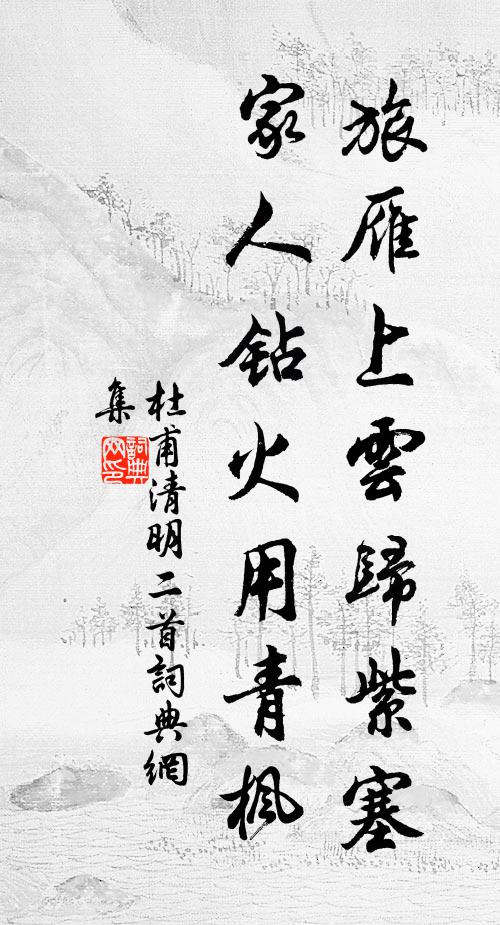 旅雁上雲歸紫塞
家人钻火用青楓
杜甫清明二首詞典網
集
詞典
网印